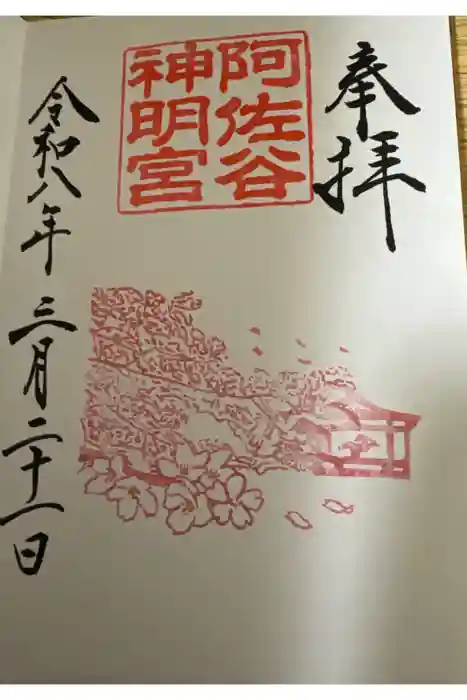 奉拝
阿佐谷
神明宮
令和八年三月二十一日